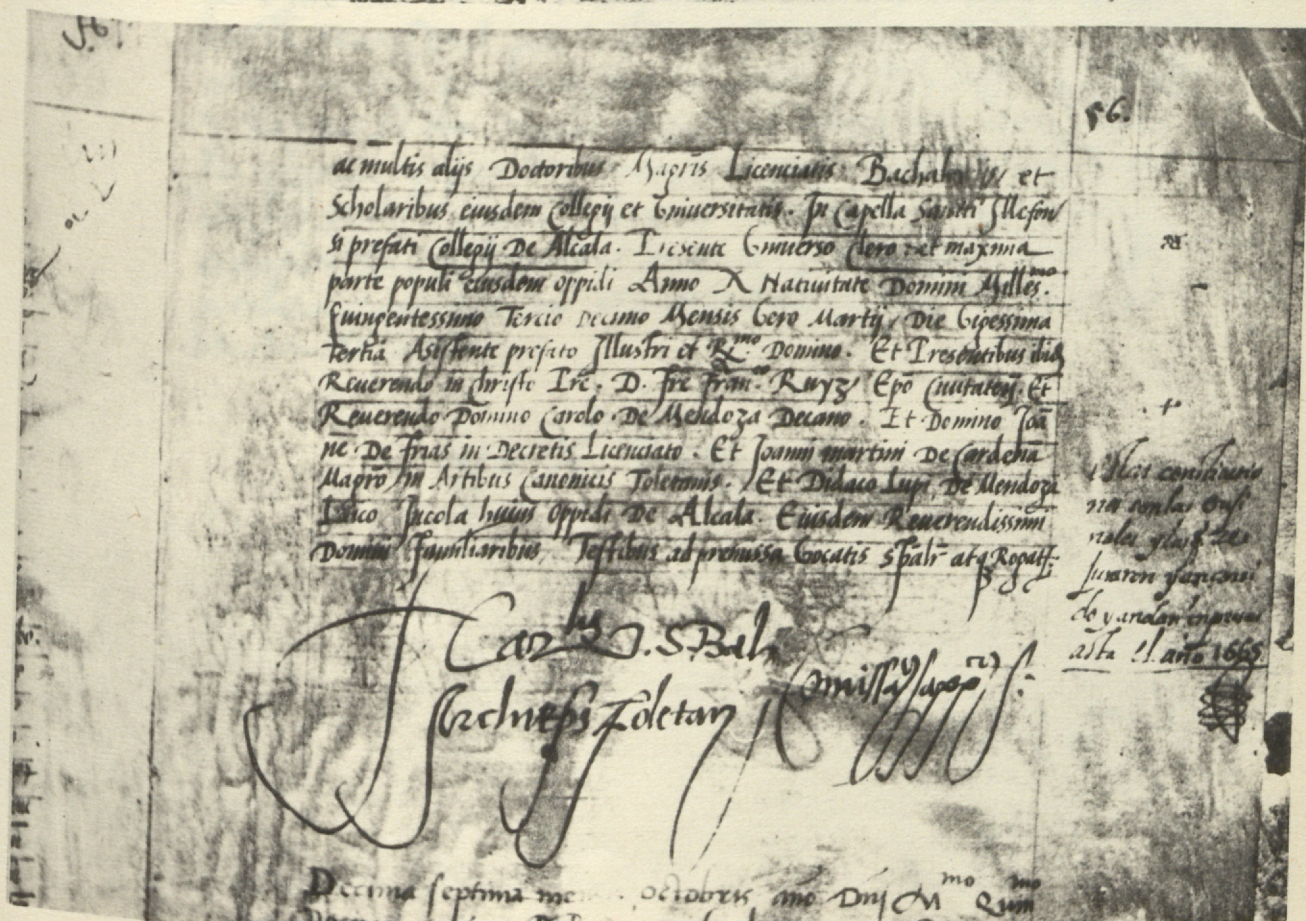 56.
56.
ac multis alijs Doctoribus Magris Licenciatis Bachalarijs et
Scholaribus eiusdem Collegij et Universitatis. In Capella Santti Illefon
si prefati Collegij De Alcala. Presente Universo Clero et maxima
parte populi eiusdem oppidi Anno A Nativitate Domini Milles.mo
quingentessimo Tercio Decimo Mensis Vero Martij, Die Vigessima
tertia Asistente prefato Illustri et R.mo Domino. Et Presentibus ibid
Reuerendo in christo Pre. D. fre fran.co Ruyz Epo Ciuitaten. Et
Reuerendo Domino Carolo De Mendoza Decano. Et Domino Joa
ne De frias in Decretis Licenciato. Et Joanni martini De Cardena
Magro in Artibus Canonicis Toletanis. Et Didaco Lupi De Mendoza
Laico Incola huius oppidi De Alcala. Eiusdem Reuerendissimi
Domini familiaribus, Testibus ad premissa Vocatis spalr atq Rogatis
Car.lis
Archieps Toletan
asta el año 1665
Decima septima octobris año Dnj M mo Quin